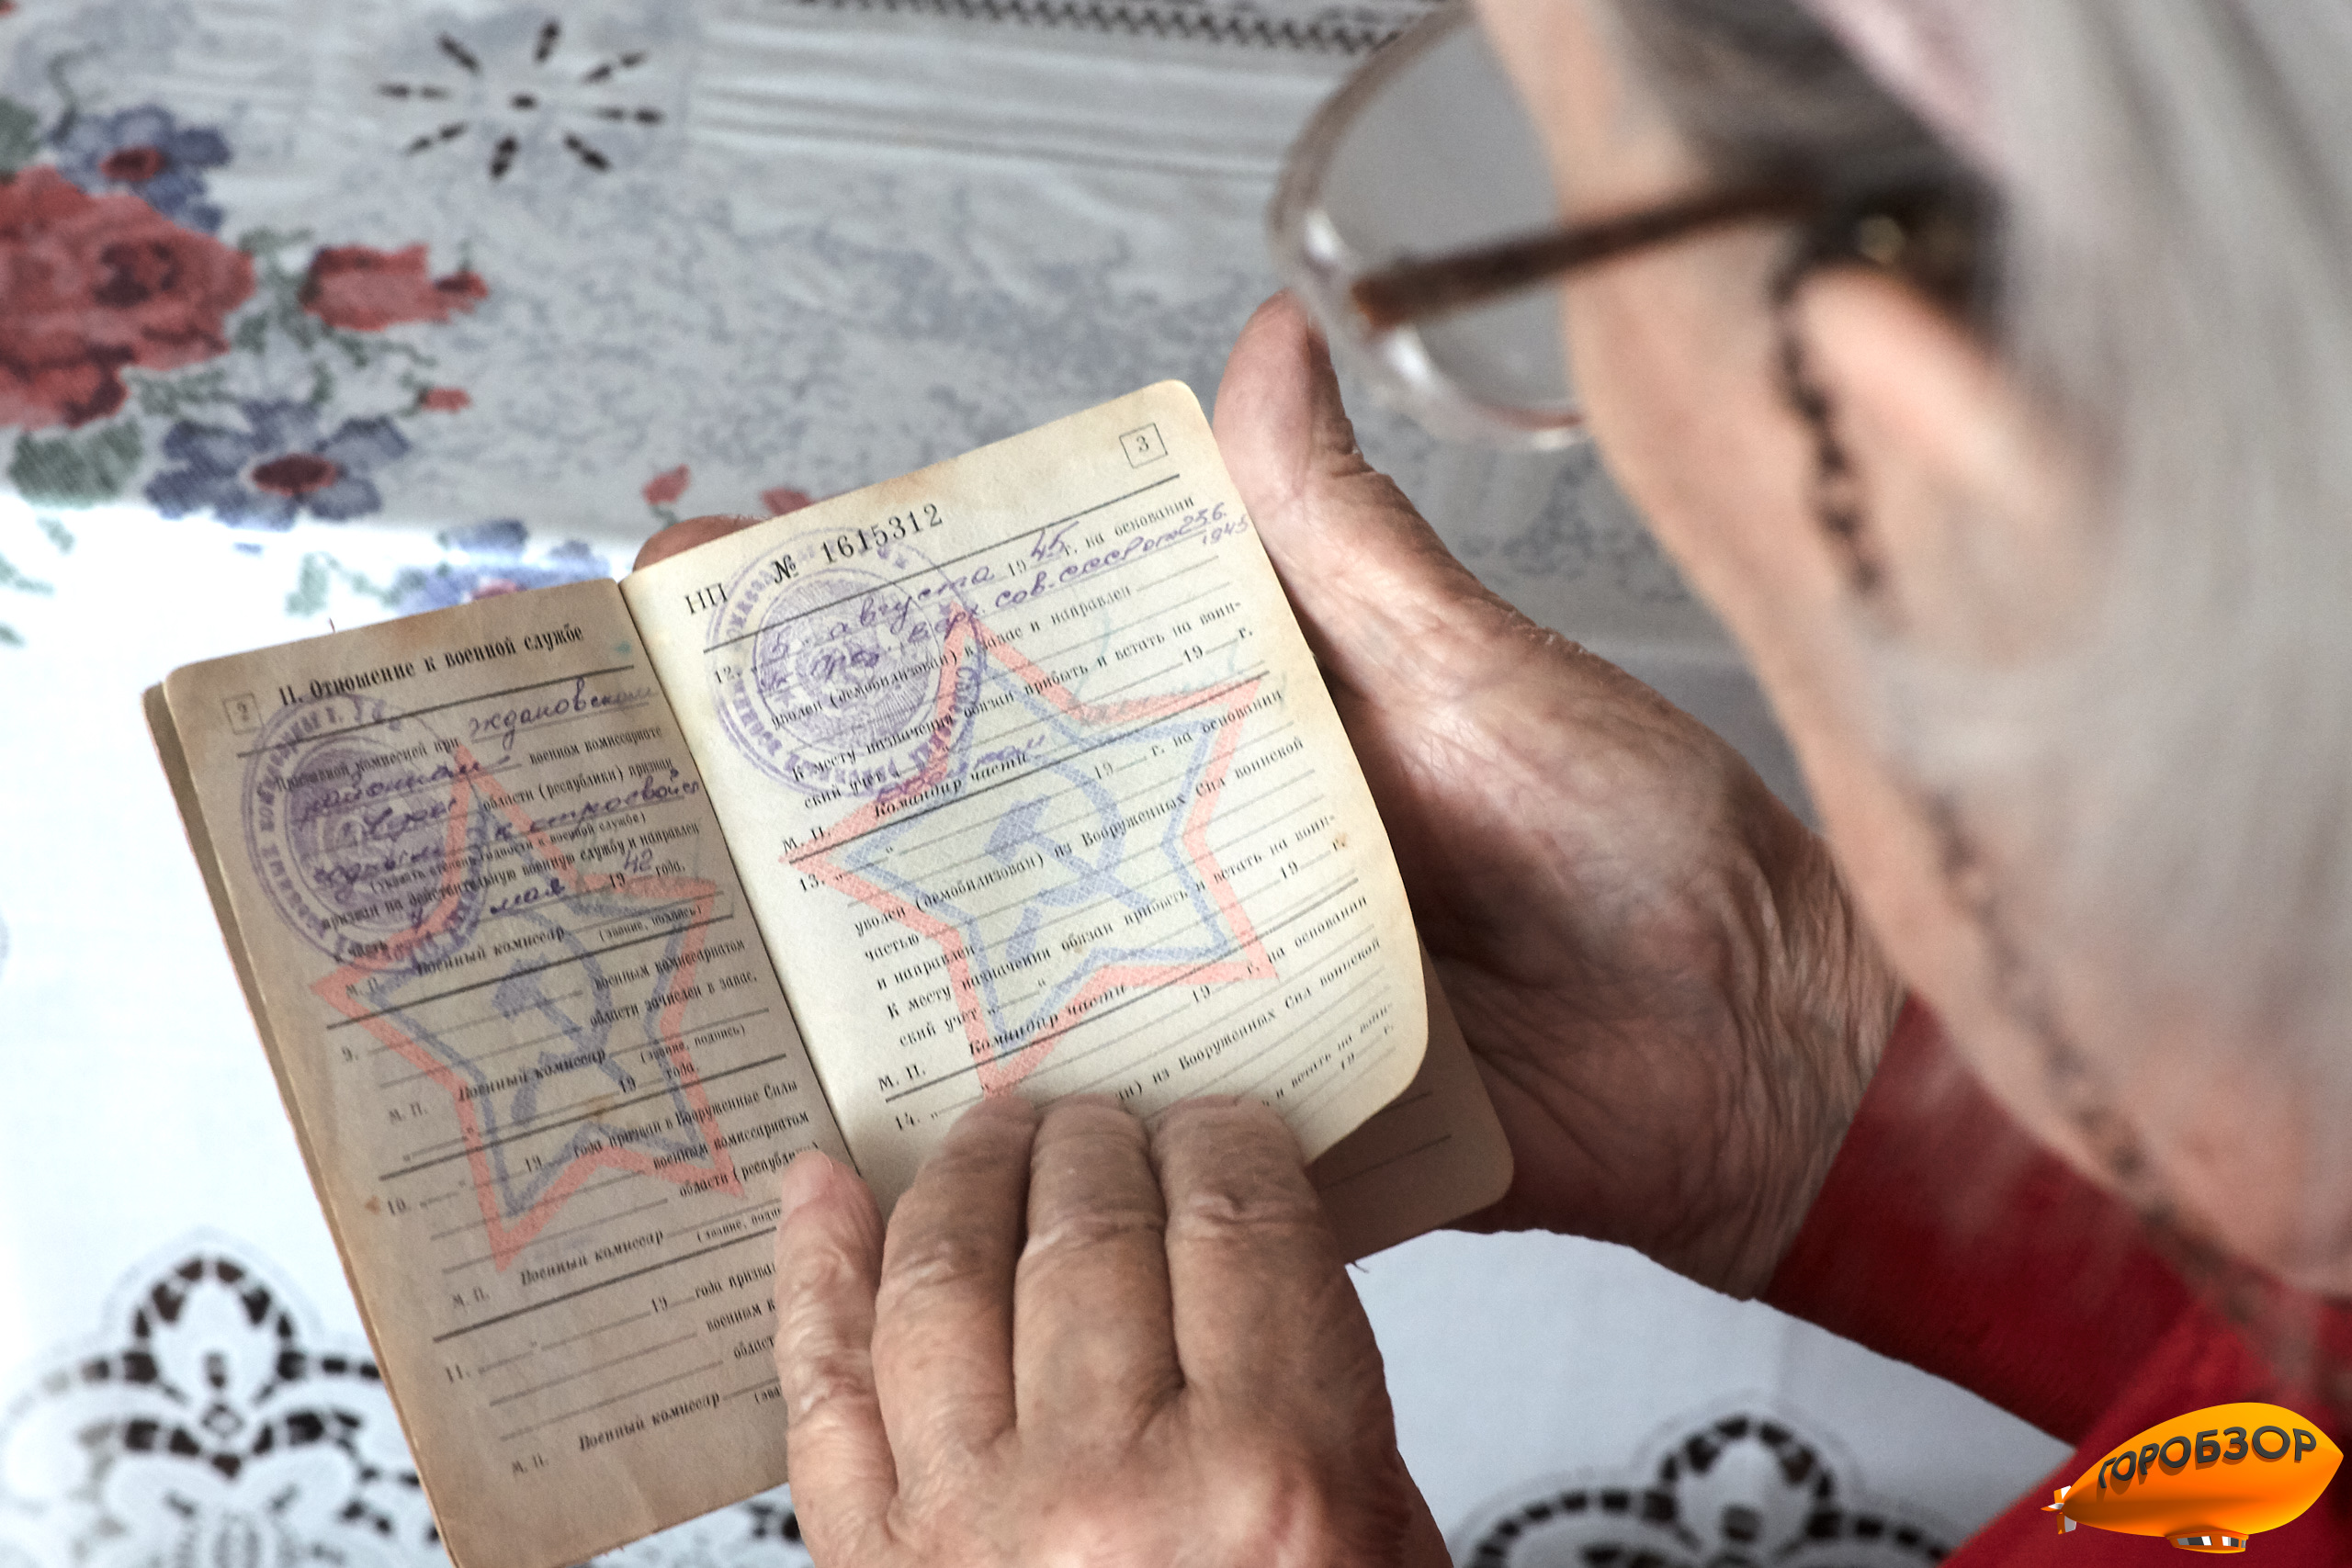 2
II. Отношение к военной службе
Призывной комиссией при Ждановском
районном военном комиссариате
области (республики) признан
годным к строевой
(указать степень годности к военной службе)
призван на действительную военную службу и направлен
в часть мая 1942 года.
Военный комиссар (звание, подпись)
М. П.
9. военным комиссариатом
области зачислен в запас.
Военный комиссар (звание, подпись)
М. П.
" 19 года.
10. " 19 года призван в Вооруженные Силы
военным комиссариатом
области (республики)
Военный комиссар (звание,
М. П.
11. " 19 года призва
военным к
облас
Военный комиссар (зва
М. П.
3
НП № 1615312
12. „5" августа 1945 г. на основании
сов. 25.6.
1945
уволен (демобилизован) в запас и направлен
К месту назначения обязан прибыть и встать на воин-
ский учет 19 г.
Командир части
М. П.
13. „ " 19 г. на основании
уволен (демобилизован) из Вооруженных Сил воинской
частью
и направлен
К месту назначения обязан прибыть и встать на воин-
ский учет „ " 19 г.
Командир части
М. П.
14. „ 19 г. на основании
из Вооруженных Сил воинской
и встать на воин-
19 г.
ГОРОБЗОР